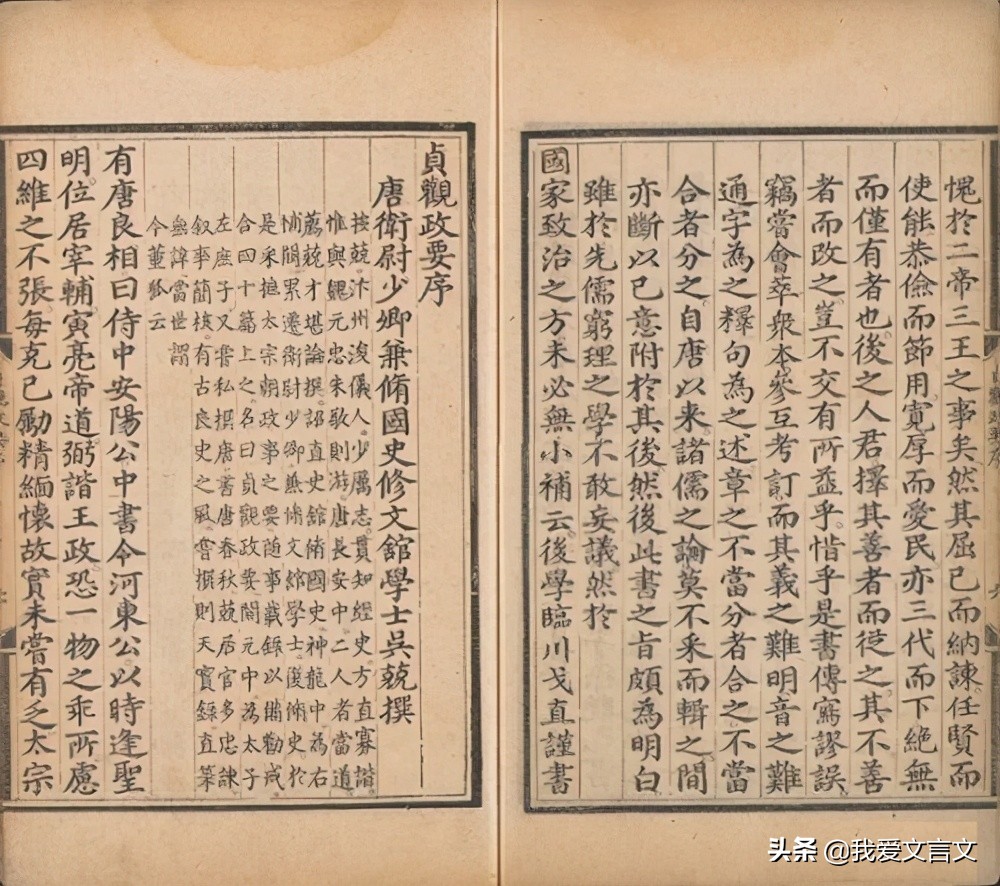 愧於二帝三王之事矣然其屈己而納諫任賢而
使能恭儉而節用寬厚而愛民亦三代而下絶無
而僅有者也後之人君擇其善者而從之其不善
者而改之豈不交有所益乎惜乎是書傳寫謬誤
竊嘗會萃衆本參互考訂而其義之難明音之難
通字為之釋句為之述章之不當分者合之不當
合者分之自唐以來諸儒之論莫不采而輯之間
亦斷以己意附於其後然後此書之旨頗為明白
雖於先儒窮理之學不敢妄議然於
國家致治之方未必無小補云後學臨川戈直謹書
貞觀政要序
唐衛尉少卿兼脩國史修文館學士吳兢撰
按兢汴州浚儀人少厲志貫知經史方直寡諧
惟與魏元忠朱敬則游唐長安中二人者當道
薦兢才堪論撰詔直史館脩國史神龍中為右
補闕累遷衛尉少卿兼脩文館學士復脩史於
是采摭太宗朝政事之要隨事載錄以備勸戒
合四十篇上之名曰貞觀政要開元中為太子
左庶子又嘗私撰唐書唐春秋兢居官多忠諫
叙事簡核有古良史之風嘗撰則天實錄直筆
無諱當世謂
今董狐云
有唐良相曰侍中安陽公中書令河東公以時逢聖
明位居宰輔寅亮帝道弼諧王政恐一物之乖所慮
四維之不張每克己勵精緬懷故實未嘗有乏太宗
头条 @我爱文言文